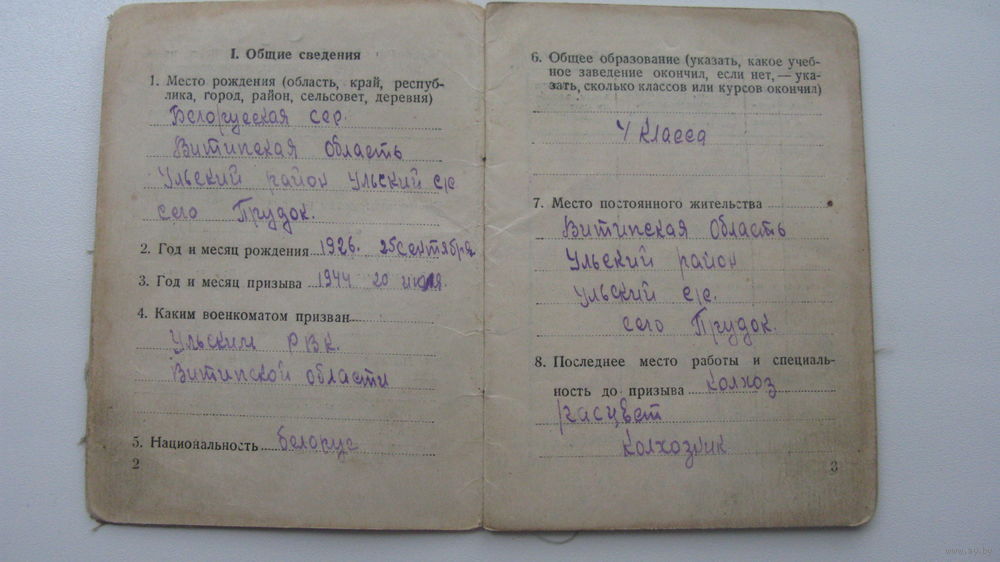 I. Общие сведения
1. Место рождения (область, край, респуб-
лика, город, район, сельсовет, деревня)
Белорусская сср.
Витипская область
Ульский район Ульский с/с
село Прудок.
2. Год и месяц рождения 1926. 25 сентября
3. Год и месяц призыва 1944 20 июля.
4. Каким военкоматом призван
Ульским РВК.
Витипской области
5. Национальность белорус
2
6. Общее образование (указать, какое учеб-
ное заведение окончил, если нет,— ука-
зать, сколько классов или курсов окончил)
4 класса
7. Место постоянного жительства
Витипская область
Ульский район
Ульский с/с.
село Прудок.
8. Последнее место работы и специаль-
ность до призыва колхоз
расцвет
колхозник
3
www.ay.by